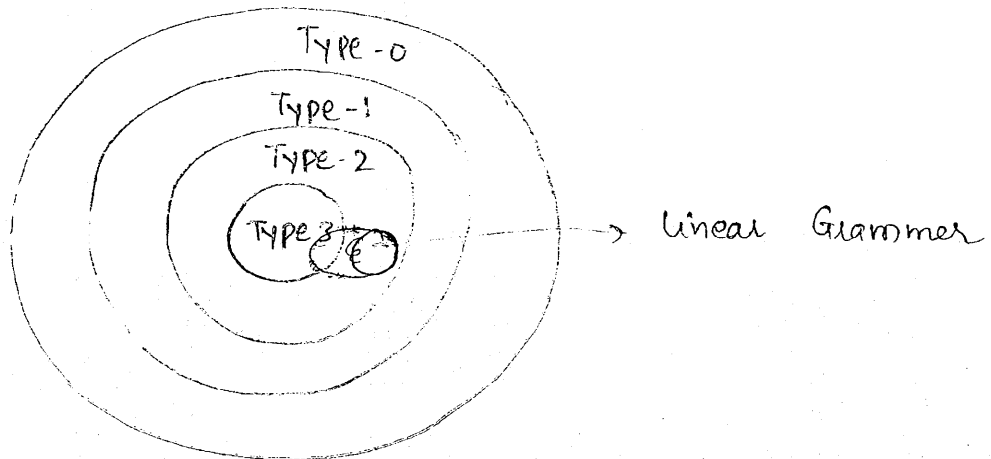 Type-0
Type-1
Type-2
Type 3
Linear Grammer